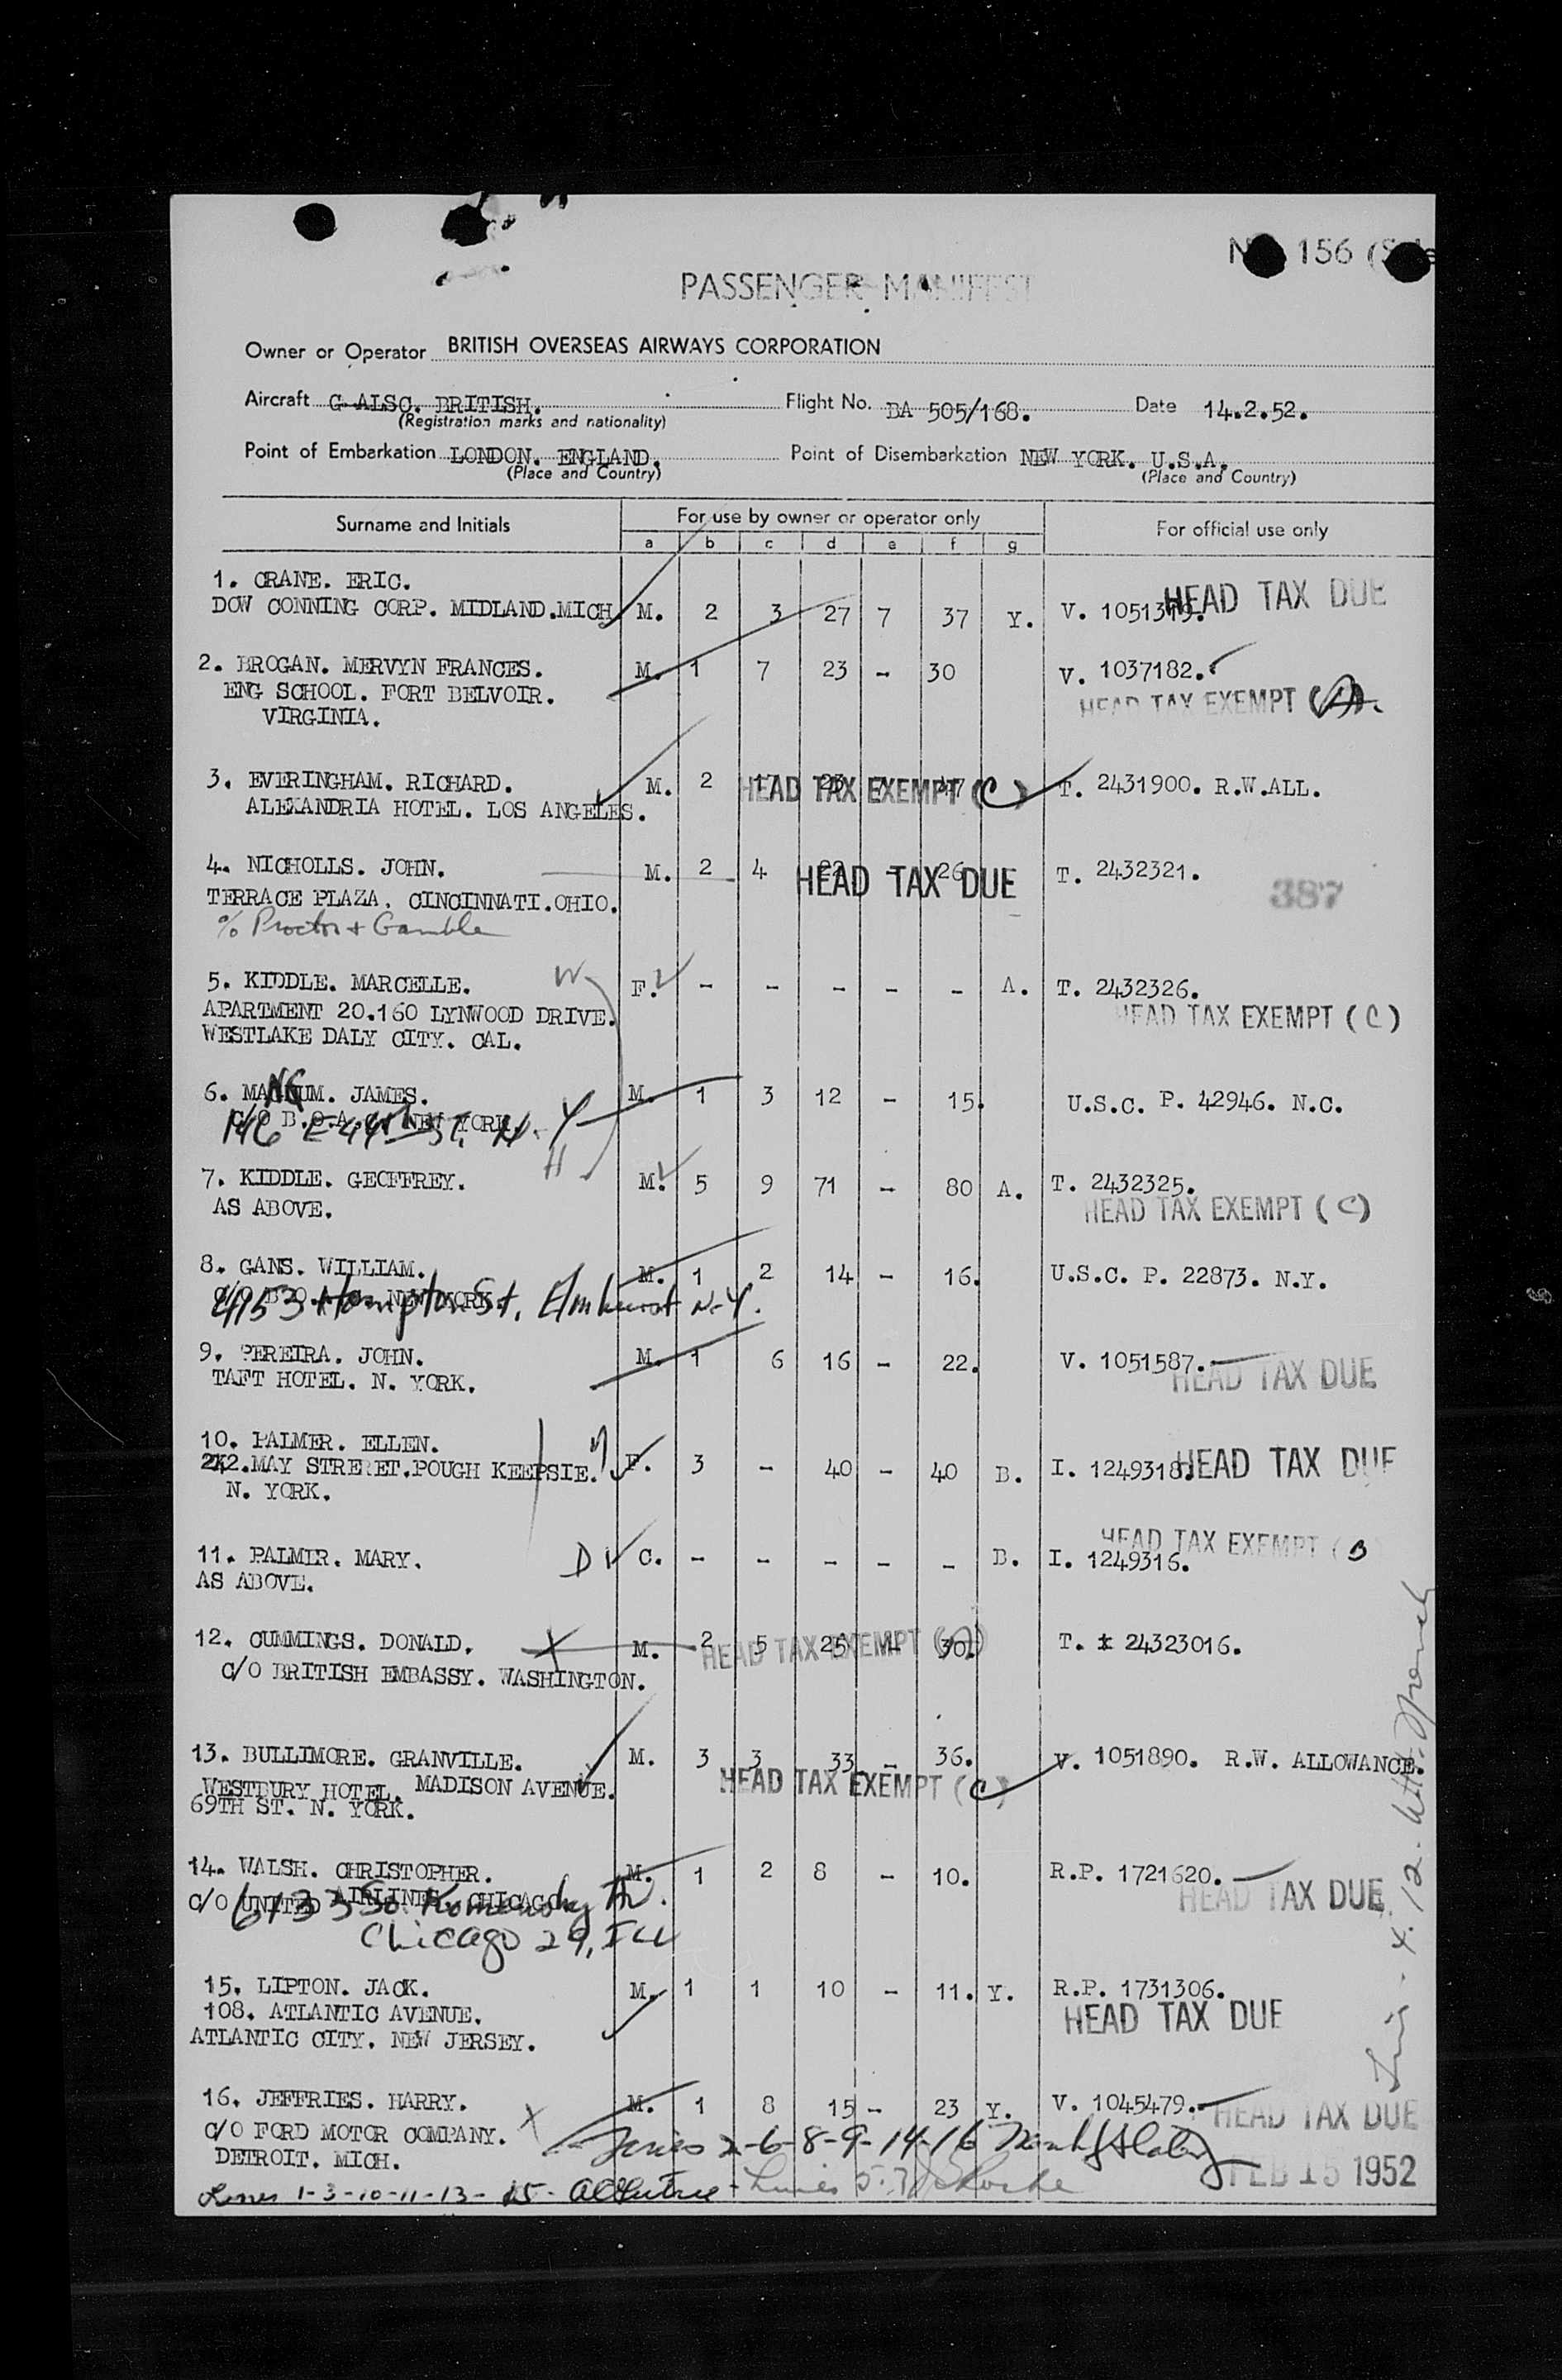 156
PASSENGER MANIFEST
Owner or Operator BRITISH OVERSEAS AIRWAYS CORPORATION
Aircraft G ALSC. BRITISH. Flight No. BA 505/168. Date 14.2.52.
(Registration marks and nationality)
Point of Embarkation LONDON. ENGLAND. Point of Disembarkation NEW YORK. U.S.A.
(Place and Country) (Place and Country)
Surname and Initials For use by owner or operator only For official use only
a b c d e f g
1. CRANE. ERIC. HEAD TAX DUE
DOW CONNING CORP. MIDLAND.MICH M. 2 3 27 7 37 Y. V. 1051319.
2. BROGAN. MERVYN FRANCES. M. 1 7 23 - 30 V. 1037182.
ENG SCHOOL. FORT BELVOIR. HEAD TAX EXEMPT
VIRGINIA.
3. EVERINGHAM. RICHARD. M. 2 17 HEAD TAX EXEMPT (C) T. 2431900. R.W.ALL.
ALEXANDRIA HOTEL. LOS ANGELES.
4. NICHOLLS. JOHN. M. 2 4 22 - 26 HEAD TAX DUE T. 2432321.
TERRACE PLAZA. CINCINNATI.OHIO. 387
% Proctor + Gamble
5. KIDDLE. MARCELLE. W F. - - - - - A. T. 2432326.
APARTMENT 20.160 LYNWOOD DRIVE. HEAD TAX EXEMPT (C)
WESTLAKE DALY CITY. CAL.
6. MANGUM. JAMES. M. 1 3 12 - 15. U.S.C. P. 42946. N.C.
C/O B.O.A.C. NEW YORK.
146 E 44th St. N.Y
7. KIDDLE. GEOFFREY. H M. 5 9 71 - 80 A. T. 2432325.
AS ABOVE. HEAD TAX EXEMPT (C)
8. GANS. WILLIAM. M. 1 2 14 - 16. U.S.C. P. 22873. N.Y.
4953 Hampton St. Elmhurst N.Y.
9. PEREIRA. JOHN. M. 1 6 16 - 22. V. 1051587.
TAFT HOTEL. N. YORK. HEAD TAX DUE
10. PALMER. ELLEN.
242.MAY STRERET.POUGH KEEPSIE. F. 3 - 40 - 40 B. I. 1249318. HEAD TAX DUE
N. YORK.
HEAD TAX EXEMPT (B
11. PALMER. MARY. D C. - - - - - B. I. 1249316.
AS ABOVE.
12. CUMMINGS. DONALD. X M. 2 5 25 - 30. HEAD TAX EXEMPT T. 24323016.
C/O BRITISH EMBASSY. WASHINGTON.
13. BULLIMORE. GRANVILLE. M. 3 3 33 - 36. V. 1051890. R.W. ALLOWANCE.
WESTBURY HOTEL. MADISON AVENUE. HEAD TAX EXEMPT (C)
69TH ST. N. YORK.
14. WALSH. CHRISTOPHER. M. 1 2 8 - 10. R.P. 1721620.
C/O UNITED AIRLINES. CHICAGO HEAD TAX DUE
6133 So. Komensky Av.
Chicago 29, Ill
15. LIPTON. JACK. M. 1 1 10 - 11. Y. R.P. 1731306.
108. ATLANTIC AVENUE. HEAD TAX DUE
ATLANTIC CITY. NEW JERSEY.
16. JEFFRIES. HARRY. M. 1 8 15 - 23 Y. V. 1045479.
C/O FORD MOTOR COMPANY. X HEAD TAX DUE
DETROIT. MICH. Lines 2-6-8-9-14-16
FEB 15 1952
Lines 1-3-10-11-13-15- Lines 5-7